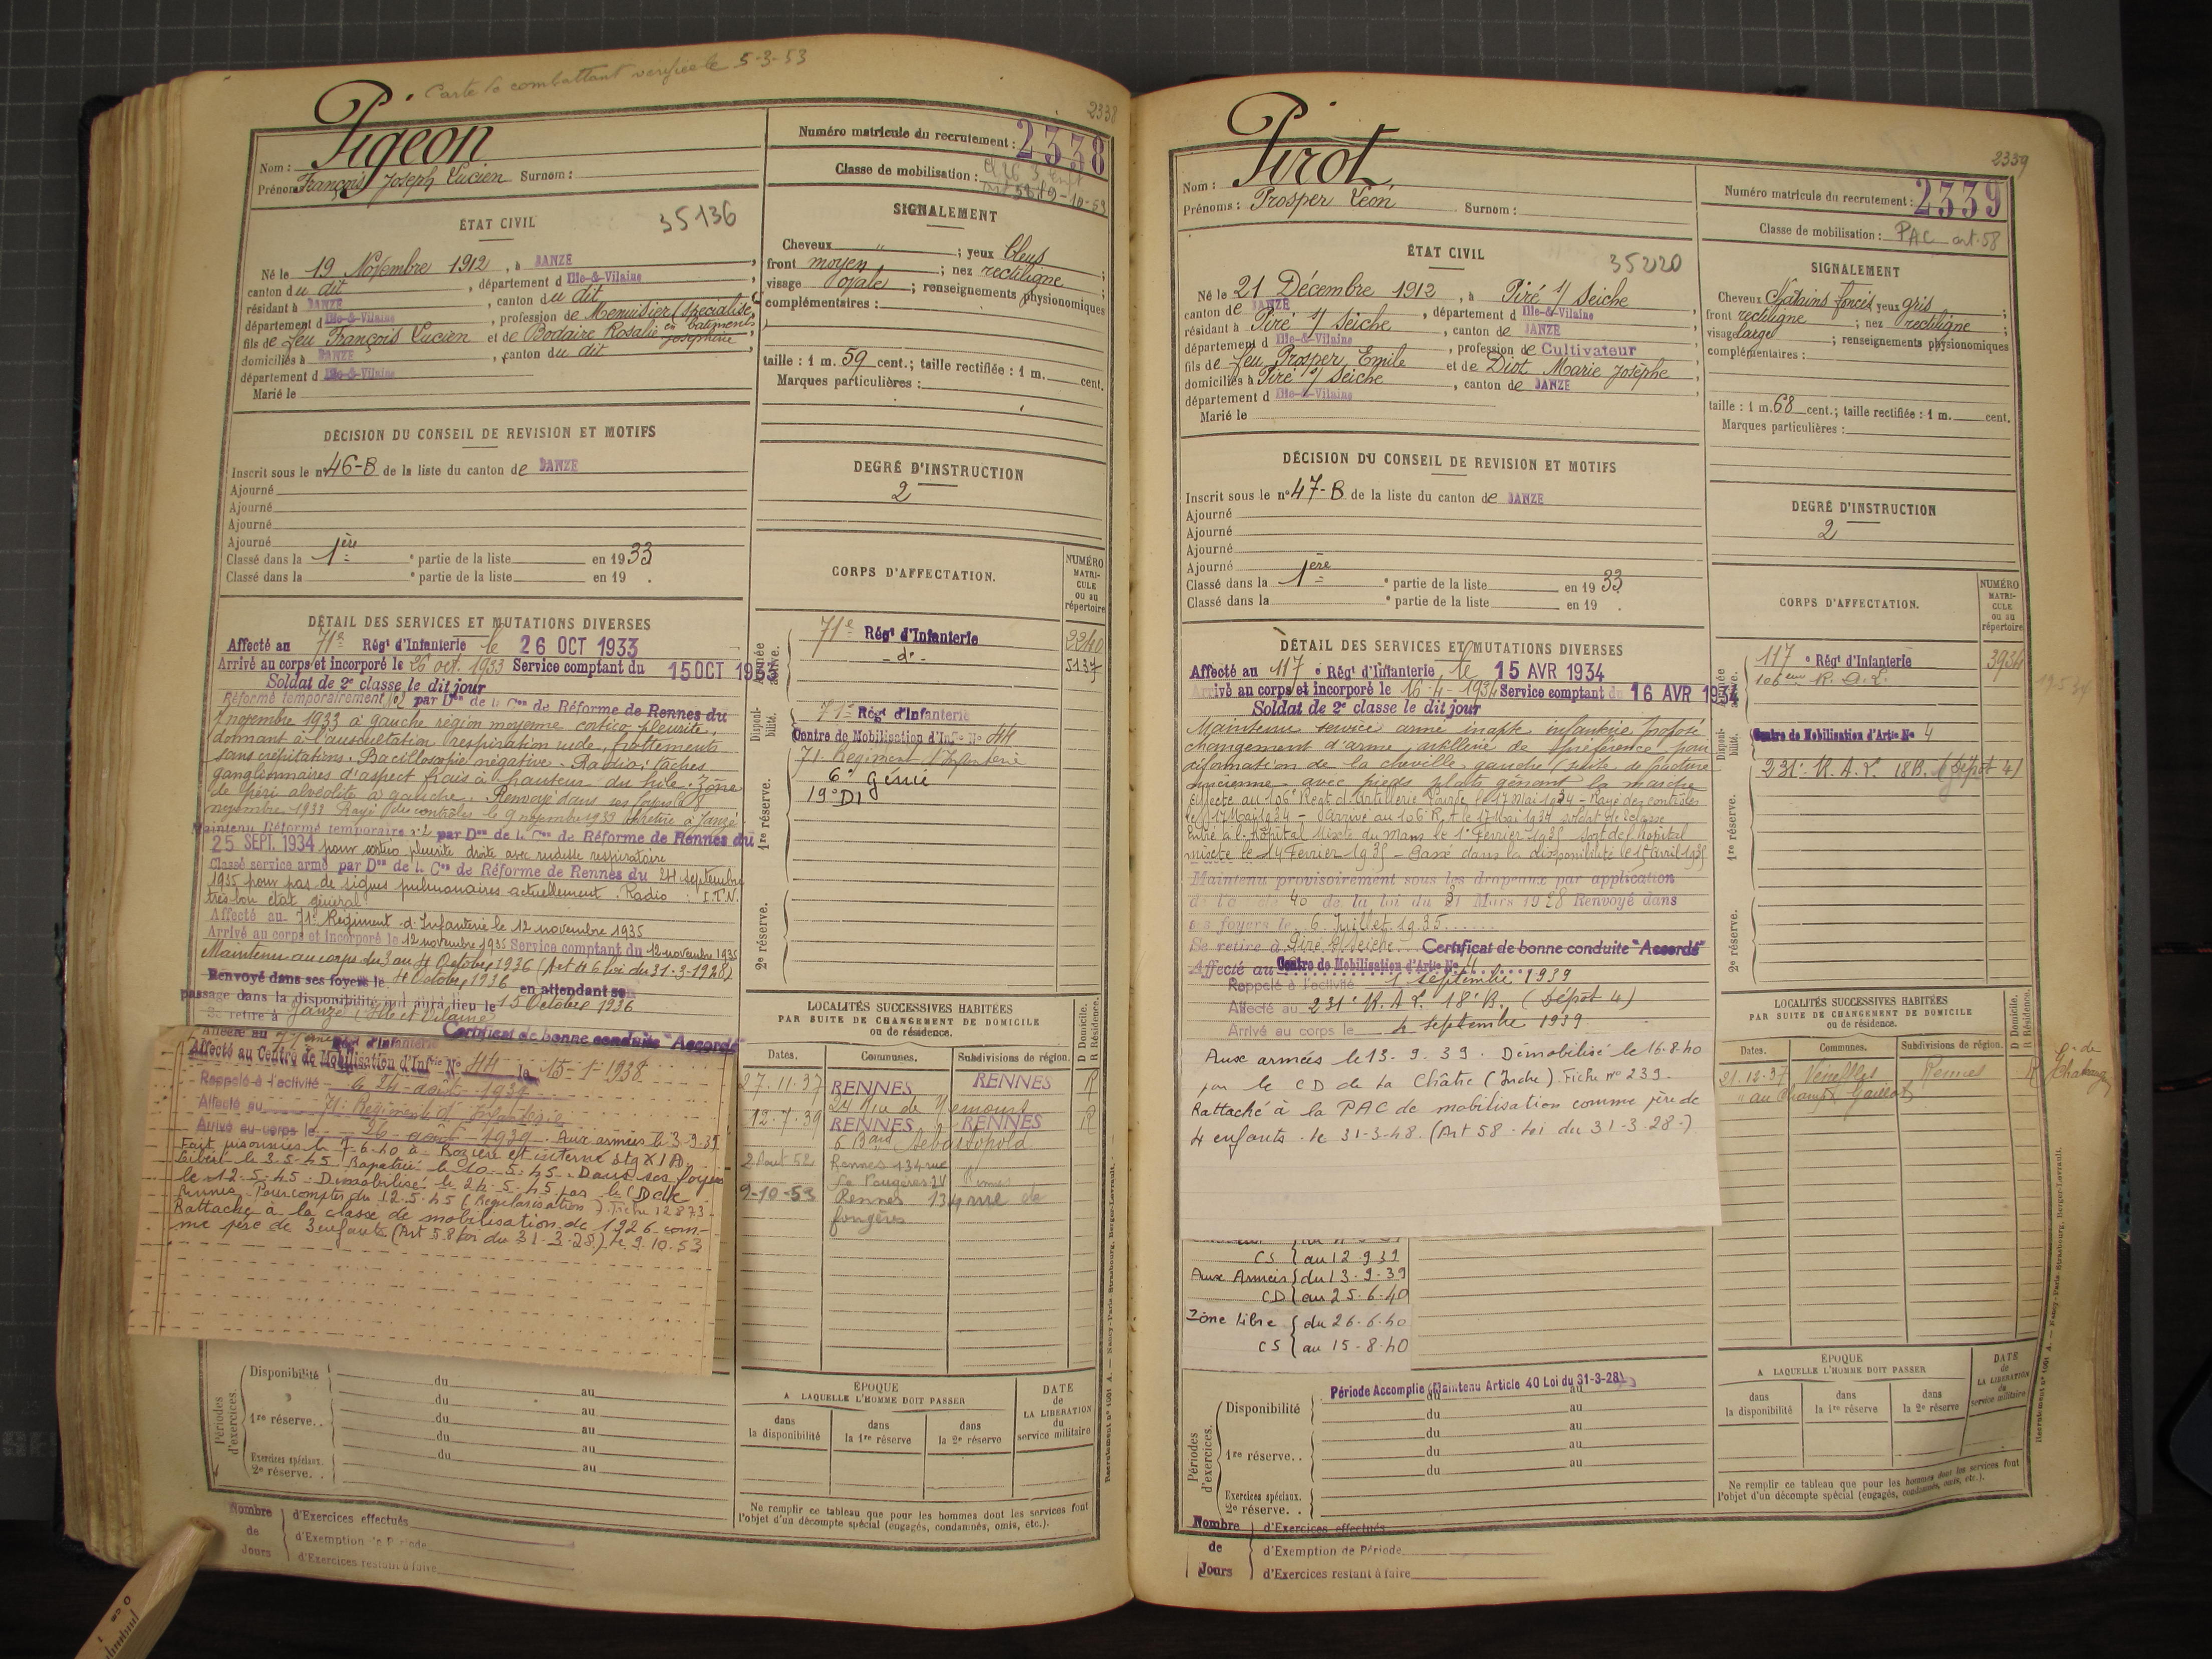 Carte de combattant verifiée le 5-3-53
2338
Nom : Pigeon
Prénoms François Joseph Lucien Surnom :
Numéro matricule du recrutement : 2338
Classe de mobilisation :
9-10-53
ÉTAT CIVIL
35136
Né le 19 Novembre 1912, à JANZE
canton du dit, département d Ille-&-Vilaine
résidant à JANZE, canton du dit
département d Ille-&-Vilaine, profession de Menuisier (spécialisé en batiments
fils de feu François Lucien et de Bodaire Rosalie Joséphine
domiciliés à JANZE, canton du dit
département d Ille-&-Vilaine
Marié le
SIGNALEMENT
Cheveux " ; yeux bleus ;
front moyen ; nez rectiligne ;
visage ovale ; renseignements physionomiques
complémentaires :
taille : 1 m. 59 cent.; taille rectifiée : 1 m. cent.
Marques particulières :
DÉCISION DU CONSEIL DE REVISION ET MOTIFS
Inscrit sous le n° 46-B de la liste du canton de JANZE
Ajourné
Ajourné
Ajourné
Ajourné
Classé dans la 1ère e partie de la liste en 1933
Classé dans la e partie de la liste en 19 .
DEGRÉ D'INSTRUCTION
2
DÉTAIL DES SERVICES ET MUTATIONS DIVERSES
Affecté au 71e Régt d'Infanterie le 26 OCT 1933
Arrivé au corps et incorporé le 26 oct. 1933 Service comptant du 15 OCT 1933
Soldat de 2e classe le dit jour
Réformé temporairement n°2 par Don de la Con de Réforme de Rennes du
7 novembre 1933 à gauche région moyenne cortico pleurite,
donnant à l'auscultation respiration rude, frottements
sans crépitations. Bacilloscopie négative. Radio: tâches
ganglionnaires d'aspect frais à hauteur du hile. Zône
de péri alvéolite à gauche. Renvoyé dans ses foyers le 8
novembre 1933 Rayé des contrôles le 9 novembre 1933 Se retire à Janzé
Maintenu Réformé temporaire n°2 par Don de la Con de Réforme de Rennes du
25 SEPT. 1934 pour cortico pleurite droite avec rudesse respiratoire
Classé service armé par Don de la Con de Réforme de Rennes du 24 septembre
1935 pour pas de signes pulmonaires actuellement. Radio : I.T.N.
très bon état général
Affecté au 71e Régiment d'Infanterie le 12 novembre 1935
Arrivé au corps et incorporé le 12 novembre 1935 Service comptant du 12 novembre 1935
Maintenu au corps du 3 au 4 Octobre 1936 (Art 46 loi du 31-3-1928)
Renvoyé dans ses foyers le 4 Octobre 1936 en attendant son
passage dans la disponibilité qui aura lieu le 15 Octobre 1936
Se retire à Janzé (Ille et Vilaine)
Certificat de bonne conduite "Accordé"
Affecté au 71ème Régt d'Infanterie
Affecté au Centre de Mobilisation d'Infie No 44 le 15-1-1938
Rappelé à l'activité le 24 août 1939
Affecté au 71e Régiment d'Infanterie
Arrivé au corps le 26 août 1939. Aux armées le 3-9-39
Fait prisonnier le 7-6-40 à Rozière et interné Stg XI A.
Libéré le 3-5-45 Rapatrié le 10-5-45. Dans ses foyers
le 12-5-45. Démobilisé le 24-5-45 par le CD de
Rennes. Pour compter du 12-5-45 (Régularisation). Fiche 12873
Rattaché à la classe de mobilisation de 1926 com-
me père de 3 enfants (Art 58 loi du 31-3-28) le 9.10.53
CORPS D'AFFECTATION.
NUMÉRO MATRI-CULE ou au répertoire
Année active.
71e Régt d'Infanterie 2240
- do - 5137
Disponi-bilité.
71e Régt d'Infanterie
Centre de Mobilisation d'Infie No 44
1re réserve.
71. Régiment d'Infanterie
6e Génie
19e DI
2e réserve.
LOCALITÉS SUCCESSIVES HABITÉES
PAR SUITE DE CHANGEMENT DE DOMICILE
ou de résidence.
D Domicile. R Résidence.
Dates. Communes. Subdivisions de région.
27.11.37 RENNES RENNES R
24 Rue de Nemours
12-7-39 RENNES RENNES R
6 Bard Sebastopold
2 Aout 52 Rennes 134 rue
de Fougères IV Rennes
9-10-53 Rennes 134 rue de
fougères
Périodes d'exercices.
Disponibilité du au
du au
1re réserve. . du au
du au
Exercices spéciaux.
2e réserve. . du au
ÉPOQUE
A LAQUELLE L'HOMME DOIT PASSER
dans la disponibilité
dans la 1re réserve
dans la 2e réserve
DATE de LA LIBÉRATION du service militaire
Ne remplir ce tableau que pour les hommes dont les services font
l'objet d'un décompte spécial (engagés, condamnés, omis, etc.).
Nombre de Jours
d'Exercices effectués
d'Exemption de Période
d'Exercices restant à faire
Recrutement n° 1001 A. — Nancy-Paris-Strasbourg, Berger-Levrault.
2339
Nom : Pirot
Prénoms : Prosper Léon Surnom :
Numéro matricule du recrutement : 2339
Classe de mobilisation : PAC art. 58
ÉTAT CIVIL
35220
Né le 21 Décembre 1912, à Piré s/ Seiche
canton de JANZE, département d Ille-&-Vilaine
résidant à Piré s/ Seiche, canton de JANZE
département d Ille-&-Vilaine, profession de Cultivateur
fils de feu Prosper Emile et de Diot Marie Josèphe
domiciliés à Piré s/ Seiche, canton de JANZE
département d Ille-&-Vilaine
Marié le
SIGNALEMENT
Cheveux Châtains foncés yeux gris ;
front rectiligne ; nez rectiligne ;
visage large ; renseignements physionomiques
complémentaires :
taille : 1 m. 68 cent.; taille rectifiée : 1 m. cent.
Marques particulières :
DÉCISION DU CONSEIL DE REVISION ET MOTIFS
Inscrit sous le n° 47-B de la liste du canton de JANZE
Ajourné
Ajourné
Ajourné
Ajourné
Classé dans la 1ère e partie de la liste en 1933
Classé dans la e partie de la liste en 19 .
DEGRÉ D'INSTRUCTION
2
DÉTAIL DES SERVICES ET MUTATIONS DIVERSES
Affecté au 117 e Régt d'Infanterie, le 15 AVR 1934
Arrivé au corps et incorporé le 16-4-1934 Service comptant du 16 AVR 1934
Soldat de 2e classe le dit jour
Maintenu service armé inapte infanterie proposé
changement d'arme, artillerie de préférence pour
déformation de la cheville gauche (suite de fracture
ancienne avec pieds plats gênant la marche
Affecté au 106e Régt d'Artillerie Lourde le 17 Mai 1934 - Rayé des contrôles
le 17 Mai 1934 - Arrivé au 106e R.A. le 17 Mai 1934 soldat de 2e classe
Entré à l'hôpital Mixte du Mans le 1er Février 1935 sort de l'hôpital
mixte le 14 Février 1935 - Passé dans la disponibilité le 15 avril 1935
Maintenu provisoirement sous les drapeaux par application
de l'article 40 de la loi du 31 Mars 1928 Renvoyé dans
ses foyers le 6 Juillet 1935
Se retire à Piré s/ Seiche - Certificat de bonne conduite "Accordé"
Affecté au Centre de Mobilisation d'Artie No 4
Rappelé à l'activité 1 septembre 1939
Affecté au 231e R.A.L. 18e B. (Dépôt 4)
Arrivé au corps le 4 septembre 1939
Aux armées le 13.9.39. Démobilisé le 16-8-40
par le CD de La Châtre (Indre). Fiche n° 239.
Rattaché à la PAC de mobilisation comme père de
4 enfants. le 31-3-48. (Art 58 - Loi du 31-3-28.)
CS } au 12.9.39
Aux Armées { du 13.9.39
CD } au 25.6.40
Zône Libre { du 26.6.40
CS } au 15-8-40
CORPS D'AFFECTATION.
NUMÉRO MATRI-CULE ou au répertoire
Année active.
117 e Régt d'Infanterie 3934
106ème R.A.L.
Disponi-bilité.
Centre de Mobilisation d'Artie No 4
1re réserve.
231e R.A.L. 18 B. (Dépôt 4)
2e réserve.
LOCALITÉS SUCCESSIVES HABITÉES
PAR SUITE DE CHANGEMENT DE DOMICILE
ou de résidence.
D Domicile. R Résidence.
Dates. Communes. Subdivisions de région.
21-12-37 Rennes R
" au Champ Gaillot
Période Accomplie (Maintenu Article 40 Loi du 31-3-28)
Périodes d'exercices.
Disponibilité du au
du au
1re réserve. . du au
du au
Exercices spéciaux.
2e réserve. .
ÉPOQUE
A LAQUELLE L'HOMME DOIT PASSER
dans la disponibilité
dans la 1re réserve
dans la 2e réserve
DATE de LA LIBÉRATION du service militaire
Ne remplir ce tableau que pour les hommes dont les services font
l'objet d'un décompte spécial (engagés, condamnés, omis, etc.).
Nombre de Jours
d'Exercices effectués
d'Exemption de Période
d'Exercices restant à faire
Recrutement n° 1001 A. — Nancy-Paris-Strasbourg, Berger-Levrault.